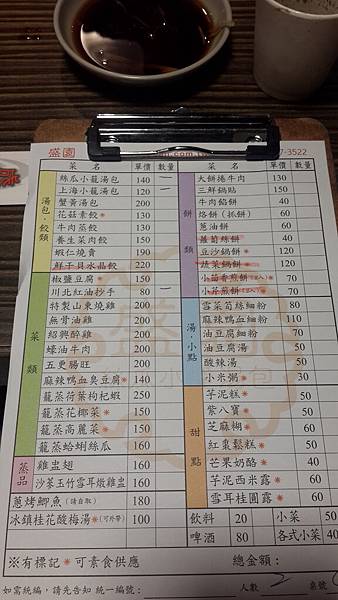 盛園
7-3522
菜 名 單價 數量
湯包.餃類
絲瓜小籠湯包 140
上海小籠湯包 120 一
蟹黃湯包 200
花菇素餃※ 130
牛肉蒸餃 130
養生菜肉餃 150
蝦仁燒賣 190
鮮干貝水晶餃 220
菜類
椒鹽豆腐※ 150
川北紅油抄手 80 一
特製山東燒雞 200
無骨油雞 200
紹興醉雞 200
蠔油牛肉 200
五更腸旺 200
麻辣鴨血臭豆腐※ 140
籠蒸荷葉枸杞蝦 250
籠蒸花椰菜※ 150
籠蒸高麗菜※ 150
籠蒸蛤蜊絲瓜 160
蒸品
雞虫翅 160
沙蔘玉竹雪耳燉雞虫 160
蔥烤鯽魚(請自取) 180
冰鎮桂花酸梅湯※(可外帶) 100
菜 名 單價 數量
餅類
大餅捲牛肉 130
三鮮鍋貼 150
牛肉餡餅 40
烙餅(抓餅) 60
蔥油餅 60
蘿蔔絲餅 40
豆沙鍋餅※ 120
蔬菜鍋餅※ 120
小茴香煎餅 70
小芹煎餅 70
湯.小點
雪菜筍絲細粉 80
麻辣鴨血細粉 110
油豆腐細粉 70
油豆腐湯 50
酸辣湯 50
小米粥※ 30
甜點
芋泥糕※ 50
紫八寶※ 50
芝麻糊※ 60
紅棗鬆糕※ 50
芒果奶酪※ 40
芋泥西米露※ 60
雪耳桂圓露※ 60
飲料 20 小菜 50
啤酒 80 各式小菜 40
※有標記※可素食供應 總金額:
如需統編,請先告知 統一編號: 人數 2 桌號